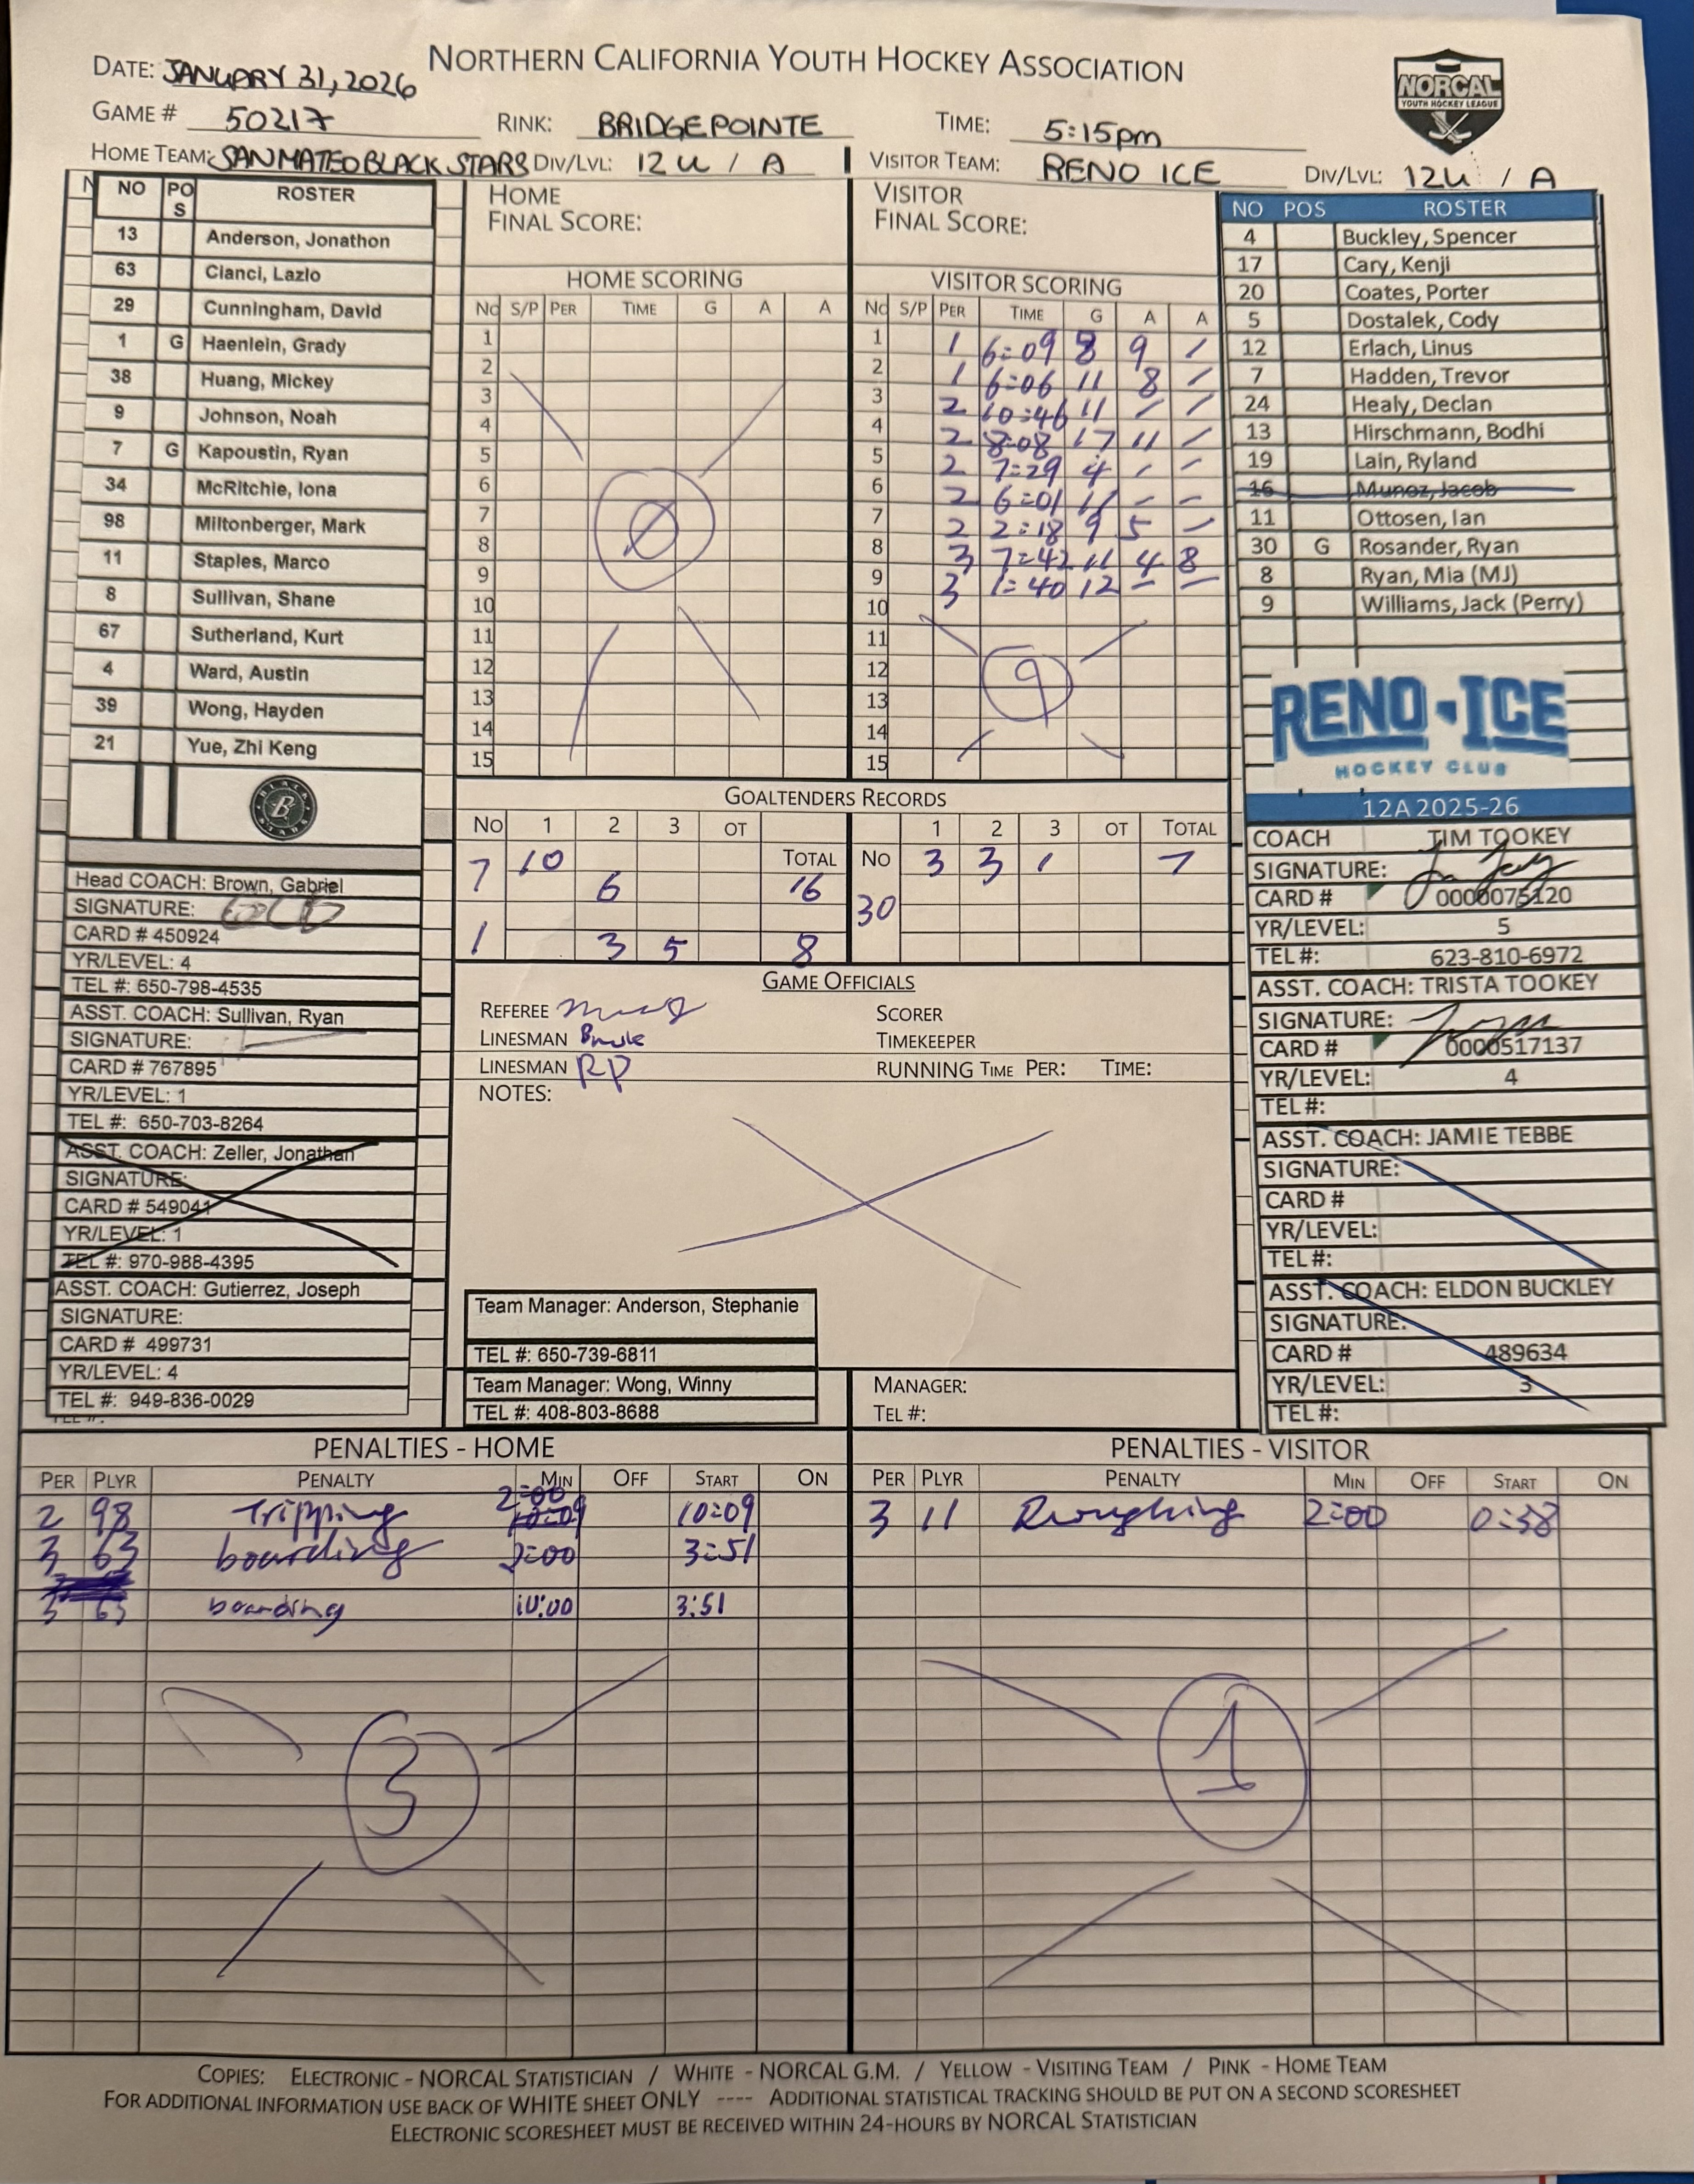 NORTHERN CALIFORNIA YOUTH HOCKEY ASSOCIATION
NORCAL
YOUTH HOCKEY LEAGUE
DATE: JANUARY 31, 2026
GAME # 50217 RINK: BRIDGEPOINTE TIME: 5:15pm
HOME TEAM: SAN MATEO BLACK STARS DIV/LVL: 12U / A VISITOR TEAM: RENO ICE DIV/LVL: 12U / A
NO POS ROSTER
13 Anderson, Jonathon
63 Cianci, Lazlo
29 Cunningham, David
1 G Haenlein, Grady
38 Huang, Mickey
9 Johnson, Noah
7 G Kapoustin, Ryan
34 McRitchie, Iona
98 Miltonberger, Mark
11 Staples, Marco
8 Sullivan, Shane
67 Sutherland, Kurt
4 Ward, Austin
39 Wong, Hayden
21 Yue, Zhi Keng
BLACK STARS
B
Head COACH: Brown, Gabriel
SIGNATURE:
CARD # 450924
YR/LEVEL: 4
TEL #: 650-798-4535
ASST. COACH: Sullivan, Ryan
SIGNATURE:
CARD # 767895
YR/LEVEL: 1
TEL #: 650-703-8264
ASST. COACH: Zeller, Jonathan
SIGNATURE:
CARD # 549041
YR/LEVEL: 1
TEL #: 970-988-4395
ASST. COACH: Gutierrez, Joseph
SIGNATURE:
CARD # 499731
YR/LEVEL: 4
TEL #: 949-836-0029
HOME
FINAL SCORE:
HOME SCORING
No S/P PER TIME G A A
1
2
3
4
5
6
7
8
9
10
11
12
13
14
15
0
VISITOR
FINAL SCORE:
VISITOR SCORING
No S/P PER TIME G A A
1 1 6:09 8 9 /
2 1 6:06 11 8 /
3 2 10:46 11 / /
4 2 8:08 17 11 /
5 2 7:29 4 / -
6 2 6:01 11 - -
7 2 2:18 9 5 -
8 3 7:42 11 4 8
9 3 1:40 12 - -
10
11
12
13
14
15
9
GOALTENDERS RECORDS
No 1 2 3 OT TOTAL
7 10 6 16
1 3 5 8
No 1 2 3 OT TOTAL
30 3 3 1 7
GAME OFFICIALS
REFEREE
LINESMAN
LINESMAN RP
SCORER
TIMEKEEPER
RUNNING TIME PER: TIME:
NOTES:
Team Manager: Anderson, Stephanie
TEL #: 650-739-6811
Team Manager: Wong, Winny
TEL #: 408-803-8688
MANAGER:
TEL #:
NO POS ROSTER
4 Buckley, Spencer
17 Cary, Kenji
20 Coates, Porter
5 Dostalek, Cody
12 Erlach, Linus
7 Hadden, Trevor
24 Healy, Declan
13 Hirschmann, Bodhi
19 Lain, Ryland
16 Munoz, Jacob
11 Ottosen, Ian
30 G Rosander, Ryan
8 Ryan, Mia (MJ)
9 Williams, Jack (Perry)
RENO ICE
HOCKEY CLUB
12A 2025-26
COACH TIM TOOKEY
SIGNATURE:
CARD # 0000075120
YR/LEVEL: 5
TEL #: 623-810-6972
ASST. COACH: TRISTA TOOKEY
SIGNATURE:
CARD # 0000517137
YR/LEVEL: 4
TEL #:
ASST. COACH: JAMIE TEBBE
SIGNATURE:
CARD #
YR/LEVEL:
TEL #:
ASST. COACH: ELDON BUCKLEY
SIGNATURE:
CARD # 489634
YR/LEVEL: 3
TEL #:
PENALTIES - HOME
PER PLYR PENALTY MIN OFF START ON
2 98 Tripping 2:00 10:09 10:09
3 63 boarding 2:00 3:51
3 63 boarding 10:00 3:51
3
PENALTIES - VISITOR
PER PLYR PENALTY MIN OFF START ON
3 11 Roughing 2:00 0:38
1
COPIES: ELECTRONIC - NORCAL STATISTICIAN / WHITE - NORCAL G.M. / YELLOW - VISITING TEAM / PINK - HOME TEAM
FOR ADDITIONAL INFORMATION USE BACK OF WHITE SHEET ONLY ---- ADDITIONAL STATISTICAL TRACKING SHOULD BE PUT ON A SECOND SCORESHEET
ELECTRONIC SCORESHEET MUST BE RECEIVED WITHIN 24-HOURS BY NORCAL STATISTICIAN